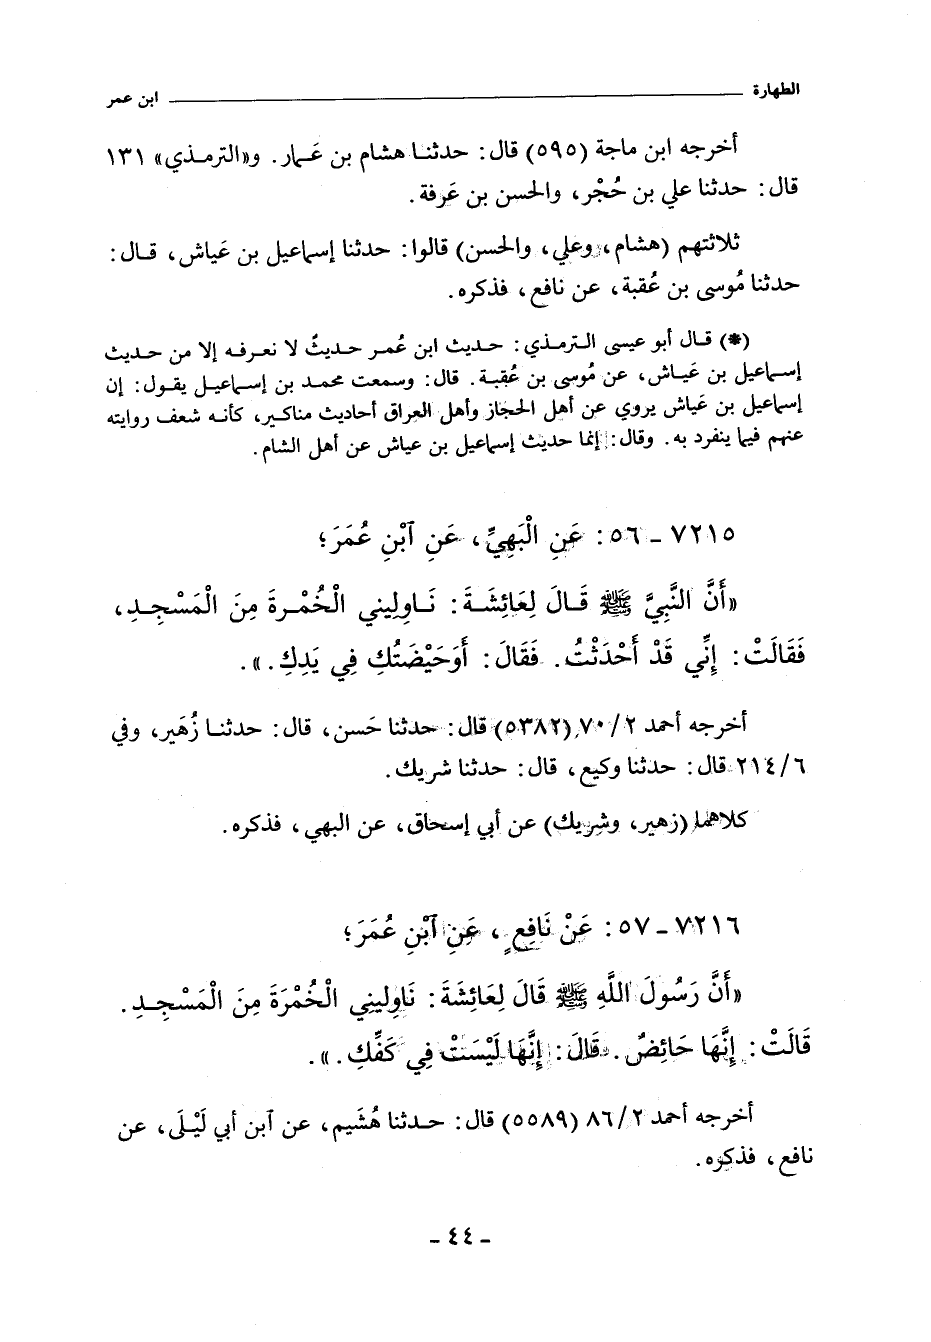 الطهارة ابن عمر
أخرجه ابن ماجة (٥٩٥) قال: حدثنا هشام بن عَمار. و«الترمذي» ١٣١
قال: حدثنا علي بن حُجْر، والحسن بن عَرفة.
ثلاثتهم (هشام، وعلي، والحسن) قالوا: حدثنا إسماعيل بن عَياش، قال:
حدثنا مُوسى بن عُقبة، عن نافع، فذكره.
(*) قال أبو عيسى الترمذي: حديث ابن عُمر حديثٌ لا نعرفه إلا من حديث
إسماعيل بن عَياش، عن مُوسى بن عُقبة. قال: وسمعت محمد بن إسماعيل يقول: إن
إسماعيل بن عَياش يروي عن أهل الحجاز وأهل العراق أحاديث مناكير، كأنه ضعف روايته
عنهم فيما ينفرد به. وقال: إنما حديث إسماعيل بن عياش عن أهل الشام.
٧٢١٥ - ٥٦: عَنِ الْبَهِيِّ، عَنِ آبْنِ عُمَرَ؛
«أَنَّ النَّبِيَّ ﷺ قَالَ لِعَائِشَةَ: نَاوِلِينِي الْخُمْرَةَ مِنَ الْمَسْجِدِ،
فَقَالَتْ: إِنِّي قَدْ أَحْدَثْتُ. فَقَالَ: أَوَحَيْضَتُكِ فِي يَدِكِ.».
أخرجه أحمد ٢/ ٧٠ (٥٣٨٢) قال: حدثنا حَسن، قال: حدثنا زُهَير، وفي
٦/ ٢١٤ قال: حدثنا وكيع، قال: حدثنا شريك.
كلاهما (زهير، وشريك) عن أبي إسحاق، عن البهي، فذكره.
٧٢١٦ - ٥٧: عَنْ نَافِعٍ، عَنِ آبْنِ عُمَرَ؛
«أَنَّ رَسُولَ اللَّهِ ﷺ قَالَ لِعَائِشَةَ: نَاوِلِينِي الْخُمْرَةَ مِنَ الْمَسْجِدِ.
قَالَتْ: إِنَّهَا حَائِضٌ. قَالَ: إِنَّهَا لَيْسَتْ فِي كَفِّكِ.».
أخرجه أحمد ٢/ ٨٦ (٥٥٨٩) قال: حدثنا هُشَيم، عن آبن أبي لَيْلَى، عن
نافع، فذكره.
- ٤٤ -